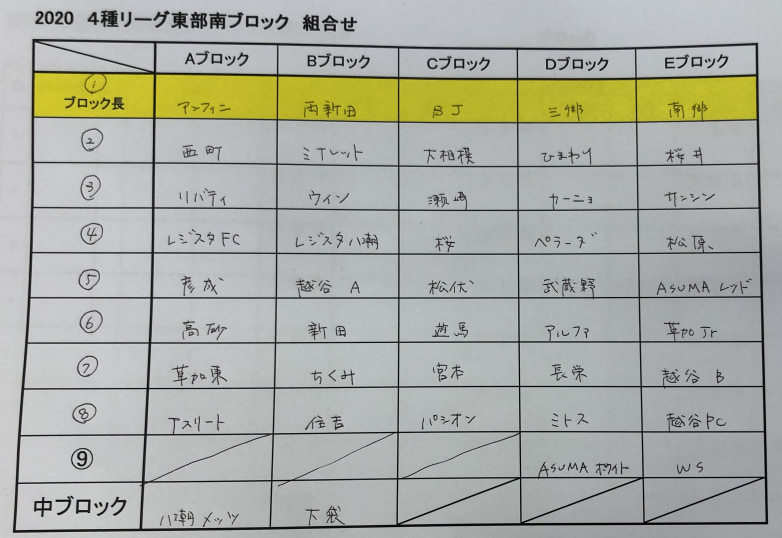 2020 4種リーグ東部南ブロック 組合せ
Aブロック Bブロック Cブロック Dブロック Eブロック
① ブロック長 アンフィニ 西新田 BJ 三郷 南郷
② 西町 ミナレット 大相模 ひまわり 桜井
③ リバティ ウィン 瀬崎 カーニョ サンシン
④ レジスタFC レジスタ八潮 桜 ペラーダ 松原
⑤ 彦成 越谷 A 松伏 武蔵野 ASUMA レッド
⑥ 高砂 新田 遊馬 アルファ 草加Jr
⑦ 草加東 ちくみ 宮本 長栄 越谷 B
⑧ アスリート 住吉 パシオン ミトス 越谷PC
⑨ ASUMA ホワイト WS
中ブロック 八潮メッツ 大袋